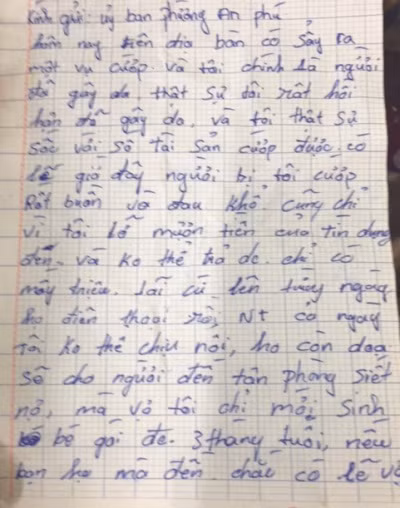 Kính gửi: uỷ ban phường An phú
hôm nay trên địa bàn có sảy ra
một vụ cướp. và tôi chính là người
đã gây ra thật sự tôi rất hối
hận đã gây do. và tôi thật sự
sốc với số tài sản cướp được. có
lẽ giờ đây người bị tôi cướp
Rất buồn và đau khổ. cũng chỉ
vì tôi lỡ mượn tiền của tín dụng
đen. và ko thể trả dc. chỉ có
mấy triệu. lãi cứ lên từng ngày
họ điện thoại rồi, NT cả ngày
Tôi ko thể chịu nổi, họ còn doạ
sẽ cho người đến tận phòng siết
nợ, mà vợ tôi chỉ mới sinh
bé gái dc. 3 tháng tuổi, nếu
bọn họ mà đến. chắc có lẽ vợ